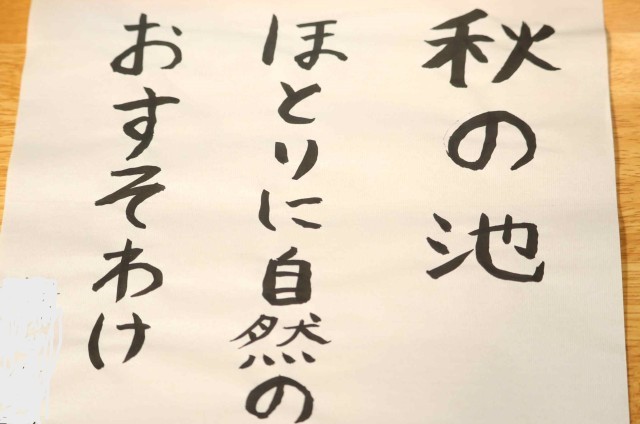 秋の池
ほとりに自然の
おすそわけ